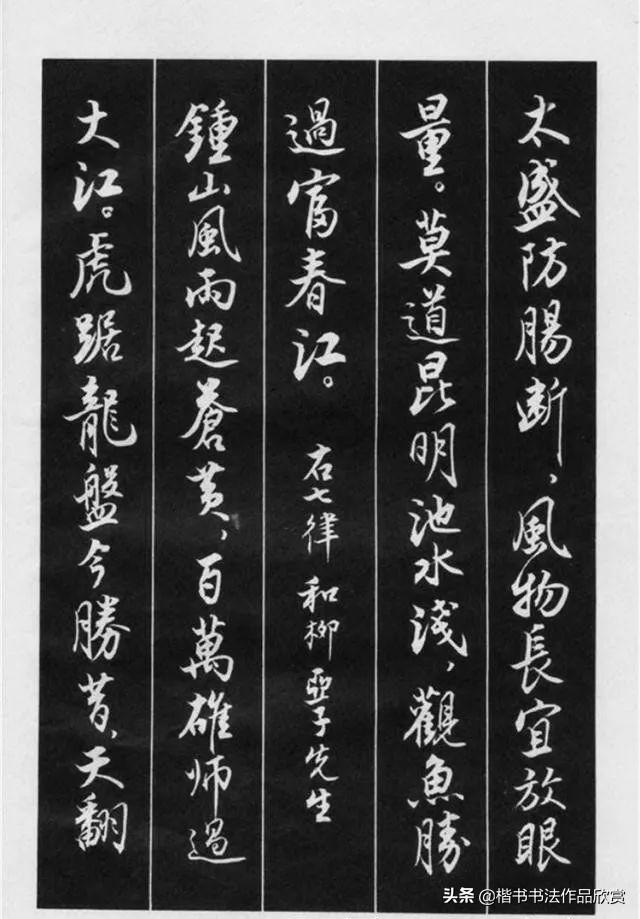 太盛防腸斷，風物長宜放眼
量。莫道昆明池水淺，觀魚勝
過富春江。 右七律 和柳亞子先生
鍾山風雨起蒼黃，百萬雄师過
大江。虎踞龍盤今勝昔，天翻
头条 @楷书书法作品欣赏